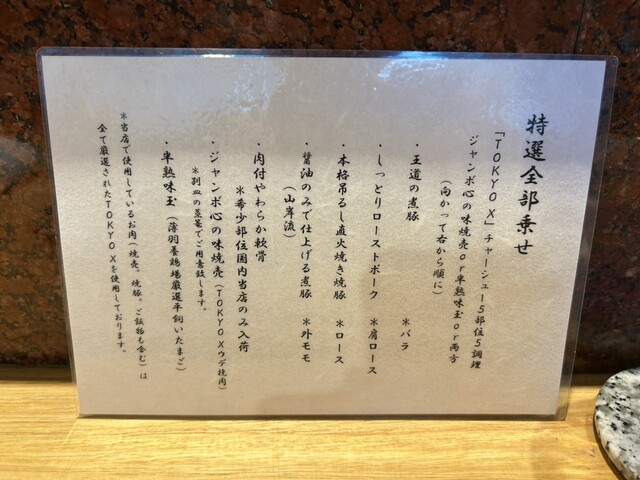 特選全部乗せ
「TOKYO X」チャーシュー5部位5調理
ジャンボ心の味焼売or半熟味玉or両方
(向かって右から順に)
・王道の煮豚　＊バラ
・しっとりローストポーク　＊肩ロース
・本格吊るし直火焼き焼豚　＊ロース
・醤油のみで仕上げる煮豚　＊外モモ
(山岸流)
・肉付やわらか軟骨
＊希少部位国内当店のみ入荷
・ジャンボ心の味焼売(TOKYO Xウデ挽肉)
＊別皿の蒸篭でご用意致します。
・半熟味玉(薄羽養鶏場厳選平飼いたまご)
＊当店で使用しているお肉(焼売。焼豚。ご飯物も含む)は
全て厳選されたTOKYO Xを使用しております。